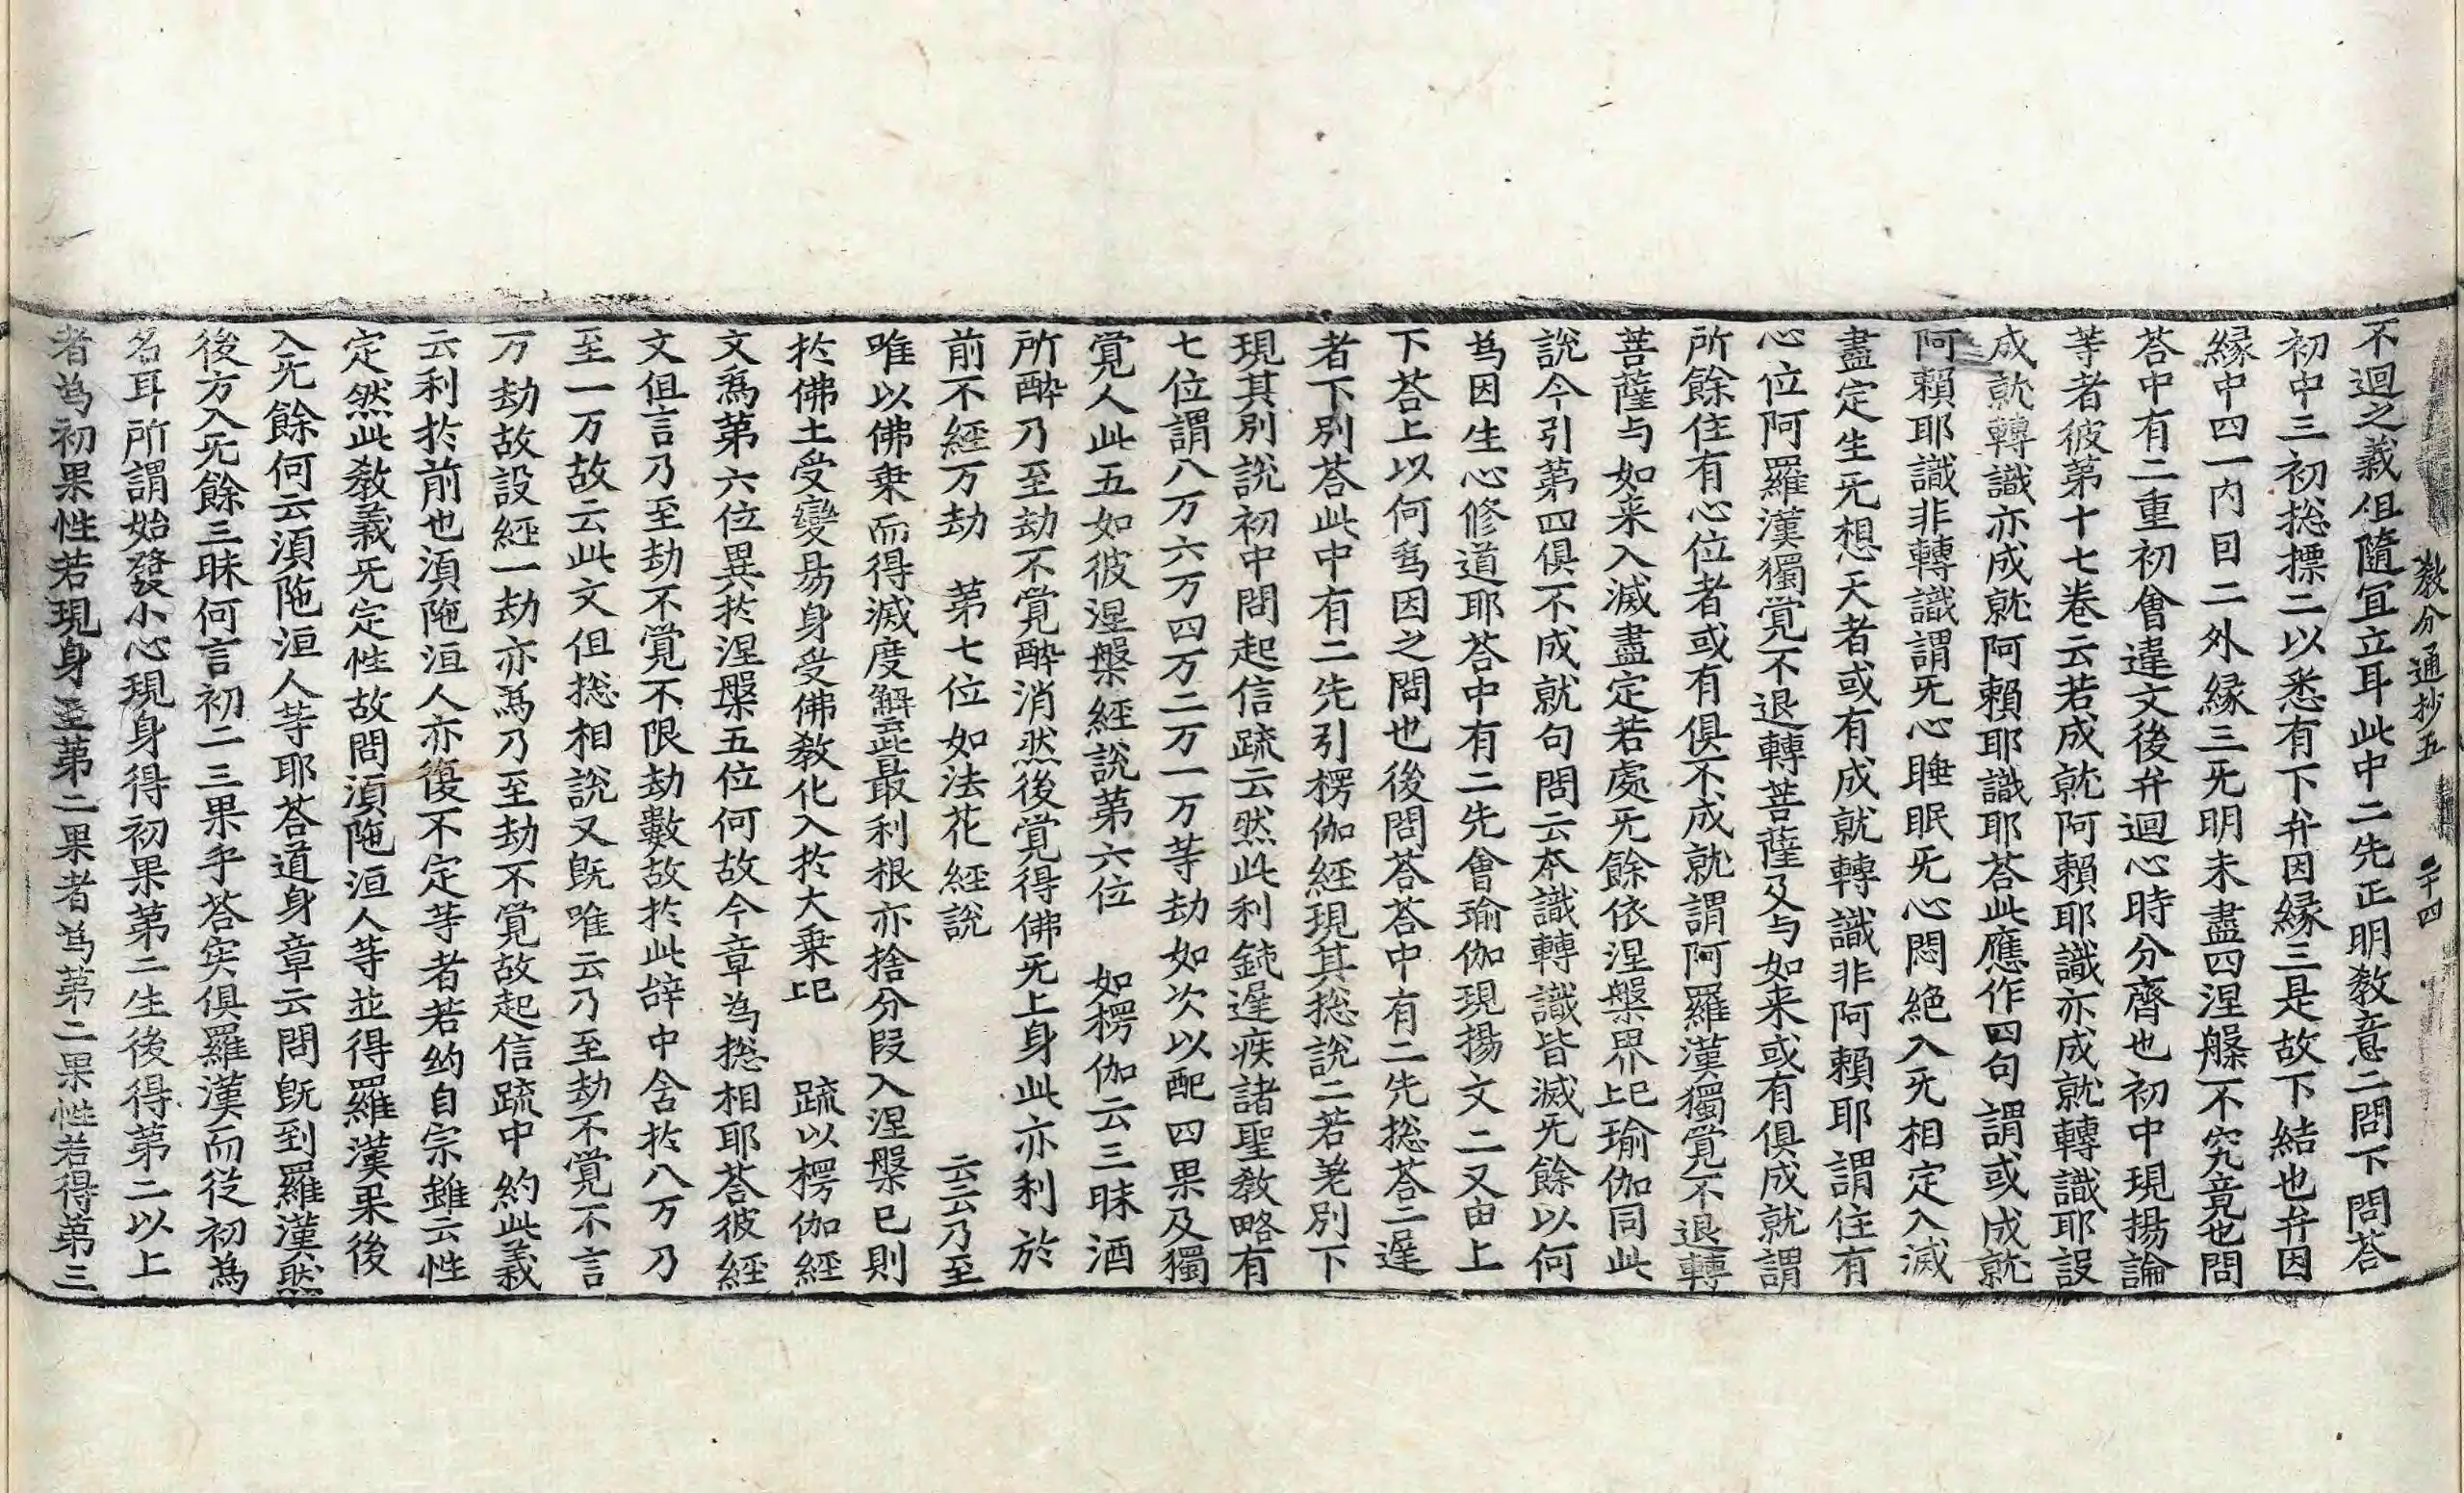 教分通抄五 二十四
不迴之義但隨宜立耳此中二先正明教意二問下問荅
初中三初揔摽二以悉有下弁因縁三是故下結也弁因
縁中四一内因二外縁三旡明未盡四涅槃不究竟也問
荅中有二重初會違文後弁迴心時分齊也初中現揚論
等者彼第十七卷云若成就阿賴耶識亦成就轉識耶設
成就轉識亦成就阿賴耶識耶荅此應作四句謂或成就
阿賴耶識非轉識謂旡心睡眠旡心悶絶入旡相定入滅
盡定生旡想天者或有成就轉識非阿賴耶謂住有
心位阿羅漢獨覺不退轉菩薩及与如来或有俱成就謂
所餘住有心位者或有俱不成就謂阿羅漢獨覺不退轉
菩薩与如来入滅盡定若處旡餘依涅槃界已上瑜伽同此
說今引第四俱不成就句問云本識轉識皆滅旡餘以何
爲因生心修道耶荅中有二先會瑜伽現揚文二又由上
下荅上以何爲因之問也後問荅荅中有二先揔荅二遅
者下別荅此中有二先引楞伽經現其揔說二若差別下
現其別說初中問起信䟽云然此利鈍遅疾諸聖教略有
七位謂八万六万四万二万一万等劫如次以配四果及獨
覺人此五如彼涅槃經說第六位 如楞伽云三昧酒
所醉乃至劫不覺酔消然後覺得佛旡上身此亦利於
前不經万劫 第七位如法花經說 云云乃至
唯以佛乗而得滅度解云此最利根亦捨分段入涅槃已則
扵佛土受變易身受佛教化入扵大乗已上 䟽以楞伽經
文爲第六位異扵涅槃五位何故今章為揔相耶荅彼經
文但言乃至劫不覺不限劫數故扵此辞中含扵八万乃
至一万故云此文但揔相說又旣唯云乃至劫不覺不言
万劫故設經一劫亦爲乃至劫不覺故起信䟽中約此義
云利扵前也湏陁洹人亦復不定等者若約自宗雖云性
定然此教義旡定性故問湏陁洹人等並得羅漢果後
入旡餘何云湏陁洹人等耶荅道身章云問旣到羅漢然
後方入旡餘三昧何言初二三果乎荅实俱羅漢而從初為
名耳所謂始發小心現身得初果第二生後得第二以上
者為初果性若現身至第二果者為第二果性若得第三